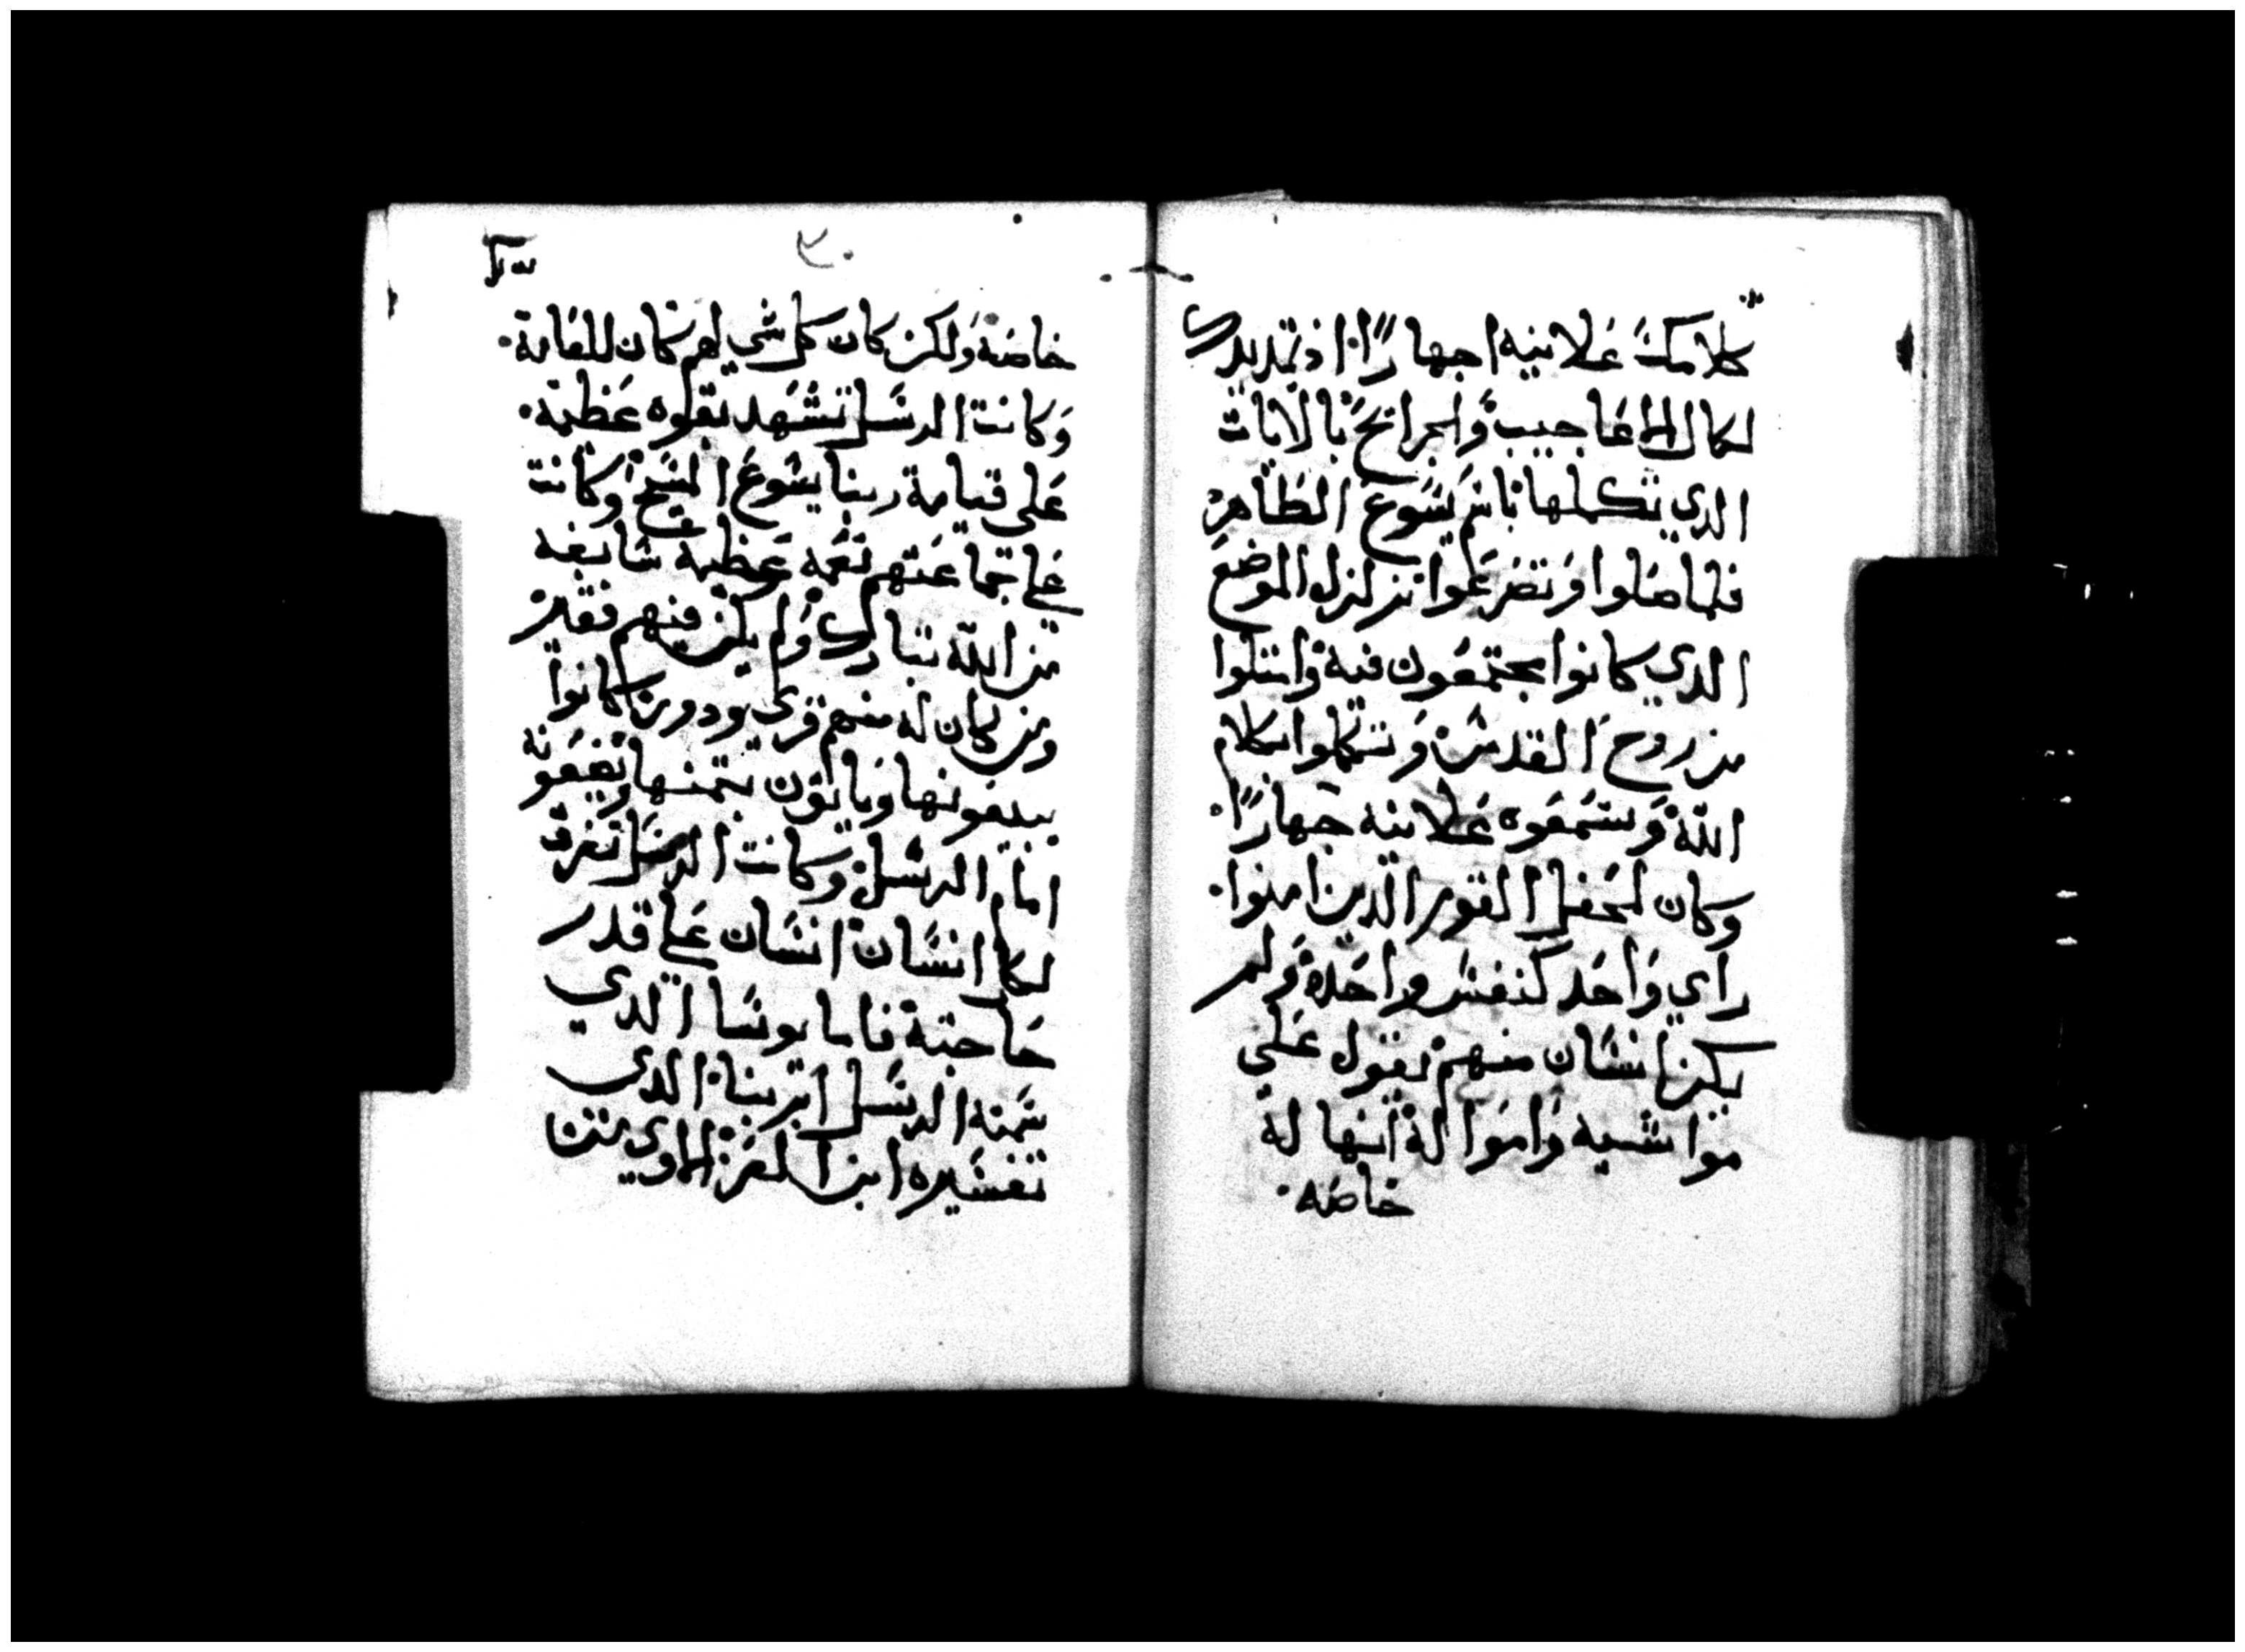 كلامك علانيه اجهارا اذ تمد يدك
لكمال الاعاجيب والجرايح بالايات
الدي تكملها باسم يسوع الطاهر
فلما صلوا وتضرعوا تزلزل الموضع
الدي كانوا مجتمعون فيه وامتلوا
من روح القدس وتكلموا بكلام
الله وسمعوه علانيه جهارا.
وكان لمحفل القوم الدين امنوا.
راي واحد كنفس واحده ولم
يكن انسان منهم يقول على
مواشيه واموالة انها لة
خاصه.
خاصة ولكن كان كل شي لهم كان للعامة.
وكانت الرسل تشهد بقوه عظيمة.
على قيامة ربنا يسوع المسيح وكانت
على جماعتهم نعمه عظيمة سابغه
من الله تبارك ولم يكن فيهم فقير
ومن كان له منهم قرى ودور كانوا
يبيعونها وياتون بتمنها ويضعونه
امام الرسل وكانت الرسل تفرق
لكل انسان انسان على قدر
حاجتة فاما يوسا الدي
سمته الرسل ابربنا الدي
تفسيره ابن العز